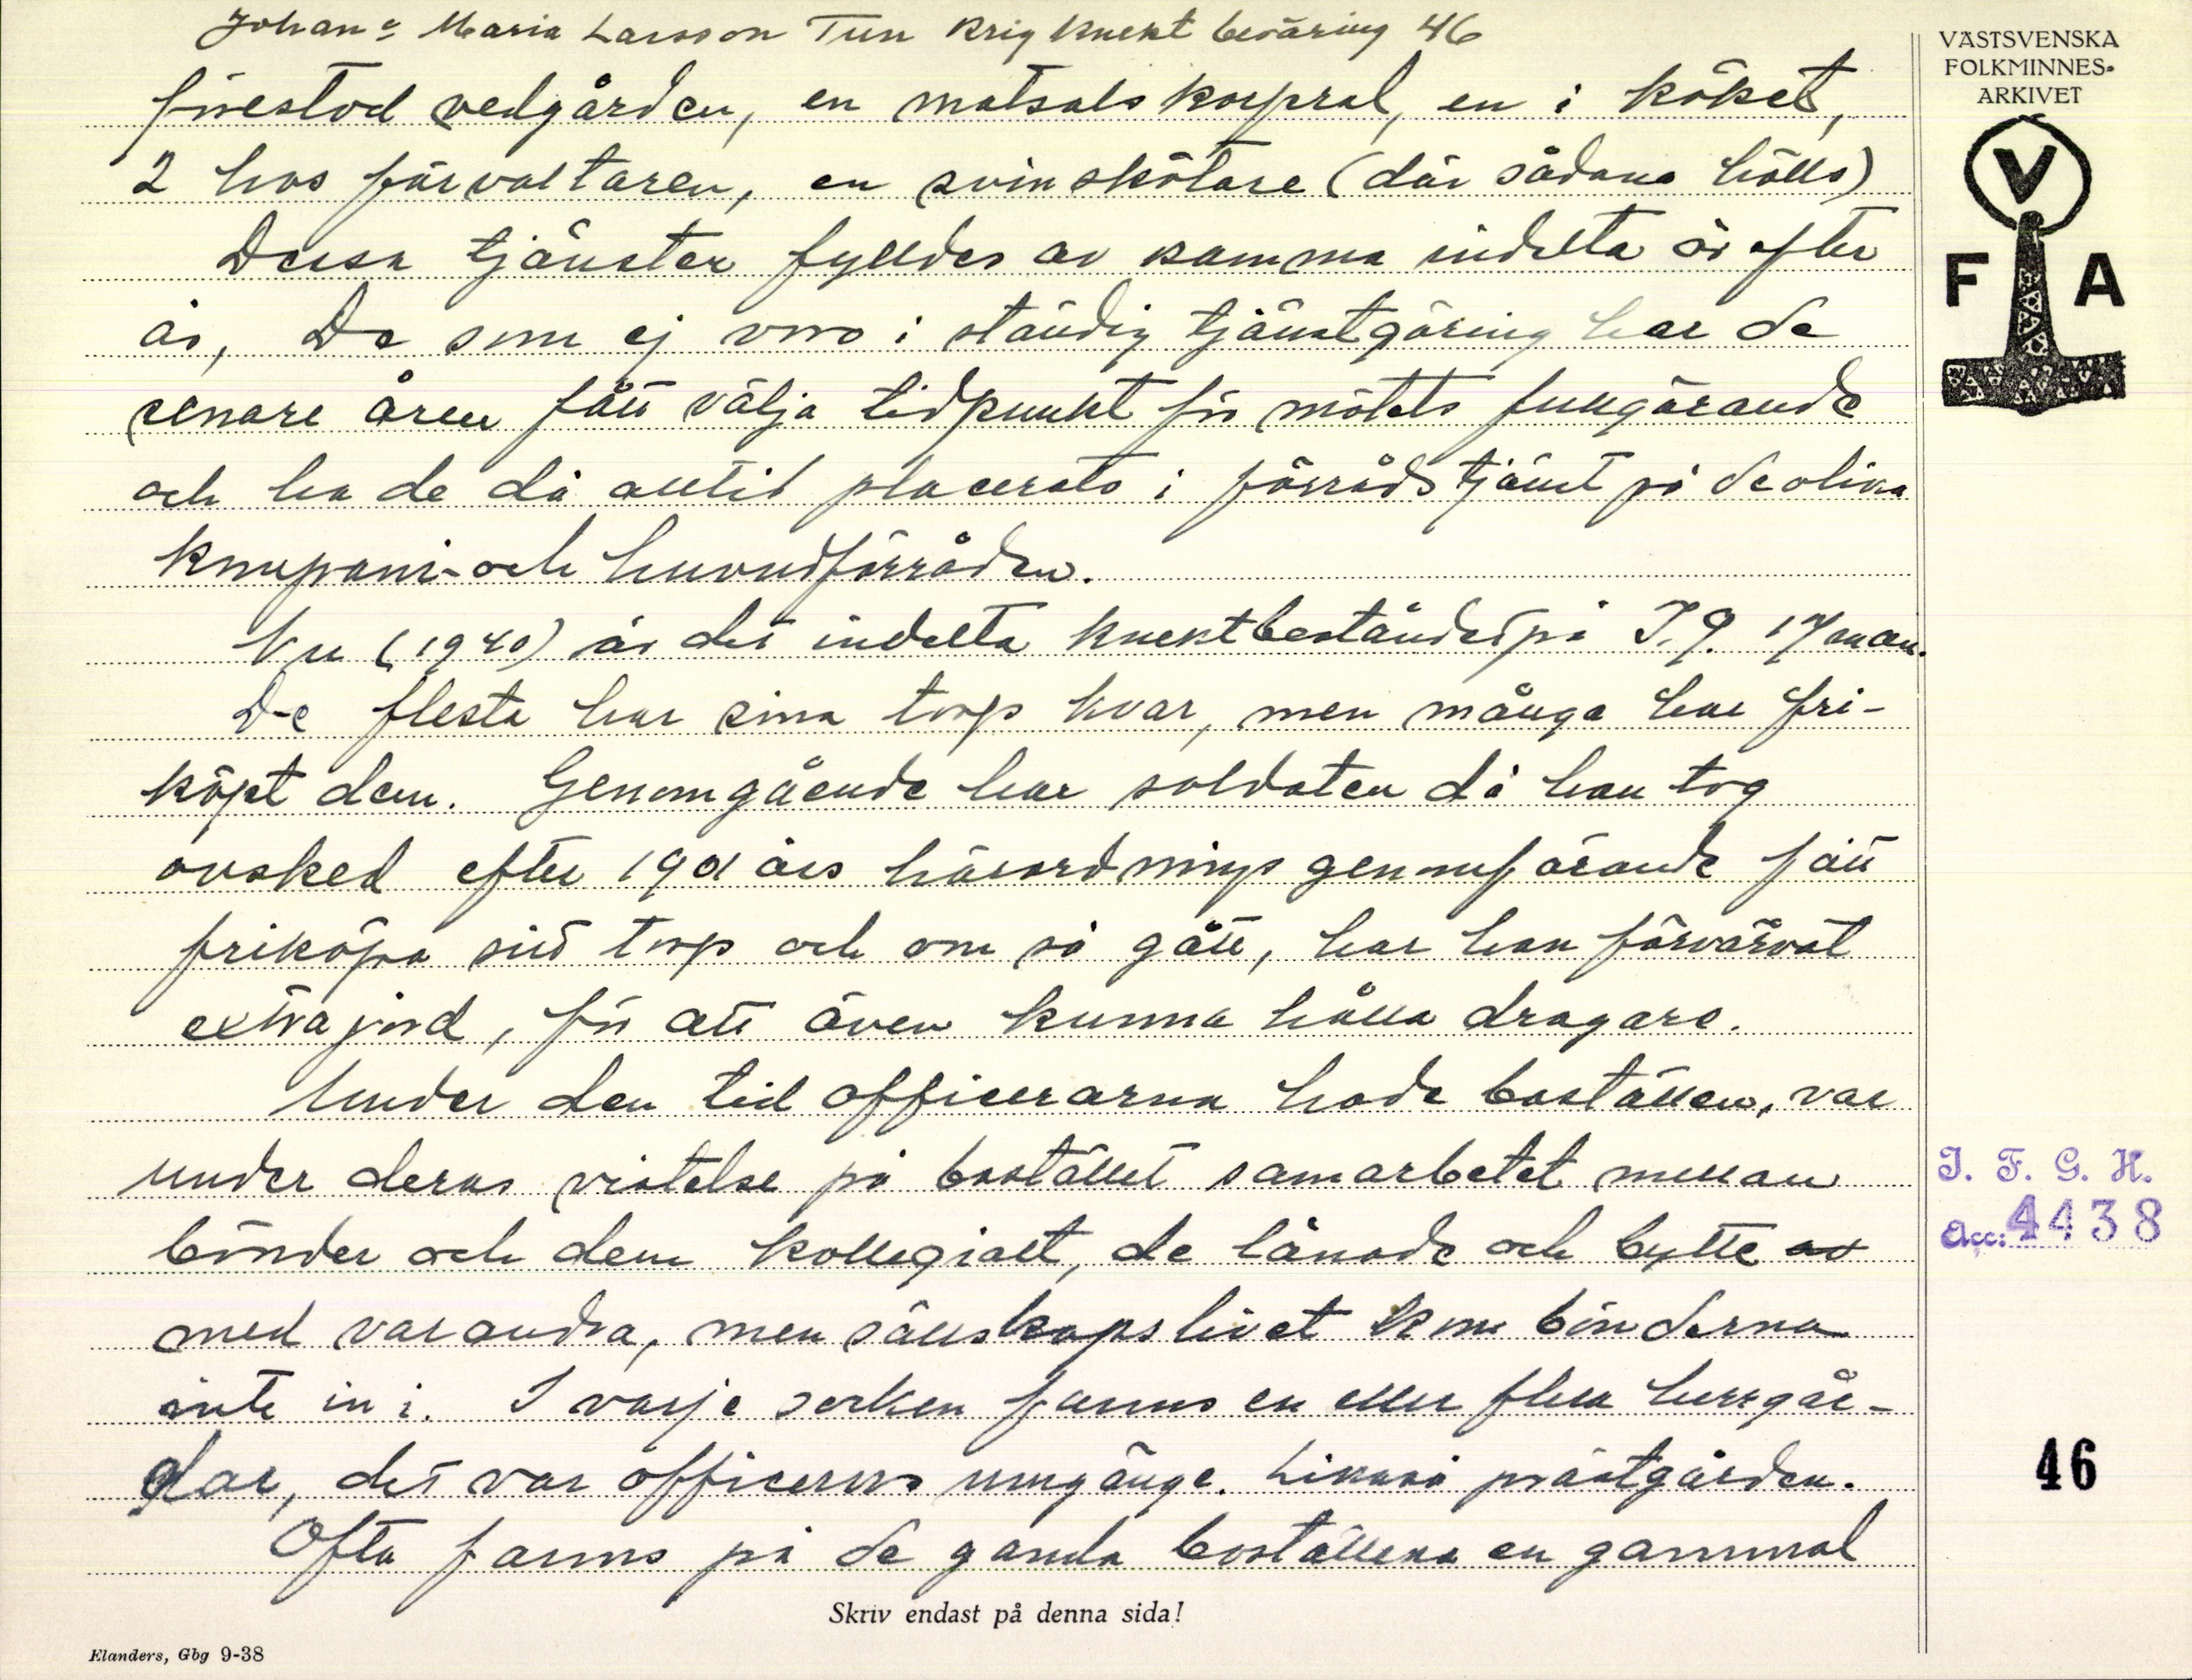 Johan o Maria Larsson Tun Krig Knekt beväring 46
VÄSTSVENSKA
FOLKMINNES-
ARKIVET
V
F A
förestod vedgården, en matsalskorpral, en i köket,
2 hos förvaltaren, en svinskötare (där sådana hölls)
Dessa tjänster fylldes av samma indelta år efter
år, De som ej voro i ständig tjänstgöring har de
senare åren fått välja tidpunkt för mötets fullgörande
och ha de då alltid placerats i förrådstjänst på de olika
kompani- och huvudförråden.
Nu (1940) är det indelta knektbeståndet på I.9. 17 man.
De flesta har sina torp kvar, men många har fri-
köpt dem. Genomgående har soldaten då han tog
avsked efter 1901 års härordnings genomförande fått
friköpa sitt torp och om så gått, har han förvärvat
extra jord, för att även kunna hålla dragare.
Under den tid officerarna hade boställen, var
under deras vistelse på bostället samarbetet mellan
bönder och dem kollegialt, de lånade och bytte av
med varandra, men sällskapslivet kom bönderna
inte in i. I varje socken fanns en eller flera herrgår-
dar, det var officerns umgänge. Likaså prästgården.
Ofta fanns på de gamla boställena en gammal
J. F. G. H.
Acc: 4438
46
Skriv endast på denna sida!
Elanders, Gbg 9-38